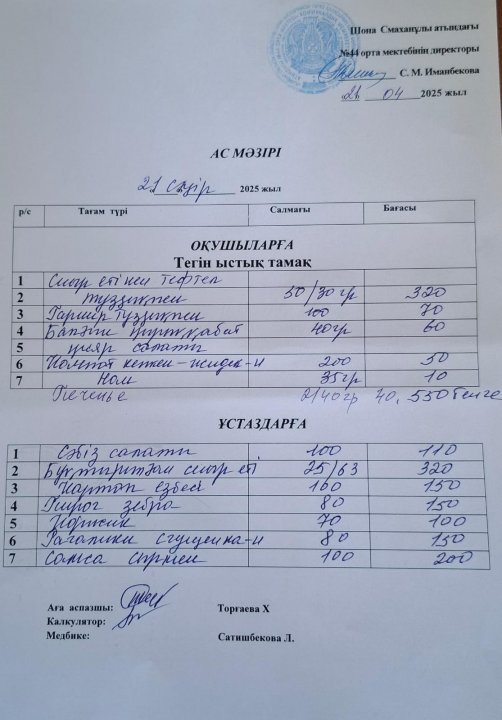 Шона Смаханұлы атындағы
№44 орта мектебінің директоры
С. М. Иманбекова
21 04 2025 жыл
АС МӘЗІРІ
21 сәуір 2025 жыл
р/с Тағам түрі Салмағы Бағасы
ОҚУШЫЛАРҒА
Тегін ыстық тамақ
1 Сиыр етінен тефтел
2 тұздықпен 50/30гр 320
3 Гарнир 100 70
4 қырыққабат 40гр 60
5 қияр салаты
6 Компот кепкен-жидек-н 200 50
7 Нан 35гр 10
Печенье 40гр 40, 550тенге
ҰСТАЗДАРҒА
1 Сәбіз салаты 100 110
2 сиыр еті 25/63 320
3 Картоп езбесі 100 150
4 Пирог зебра 80 150
5 70 100
6 Рагалики сгущенка-н 80 150
7 Самса сырмен 100 200
Аға аспазшы: Торғаева Х
Калкулятор:
Медбике: Сатишбекова Л.